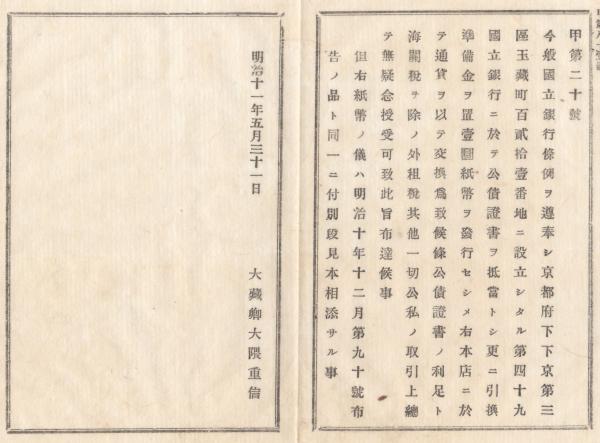 甲第二十號
今般國立銀行條例ヲ遵奉シ京都府下下京第三
區玉藏町百貳拾壹番地ニ設立シタル第四十九
國立銀行ニ於テ公債證書ヲ抵當トシ更ニ引換
準備金ヲ置壹圓紙幣ヲ發行セシメ右本店ニ於
テ通貨ヲ以テ交換爲致候條公債證書ノ利足ト
海關稅ヲ除ノ外租稅其他一切公私ノ取引上總
テ無疑念授受可致此旨布達候事
但右紙幣ノ儀ハ明治十年十二月第九十號布
告ノ品ト同一ニ付別段見本相添サル事
明治十一年五月三十一日
大藏卿大隈重信